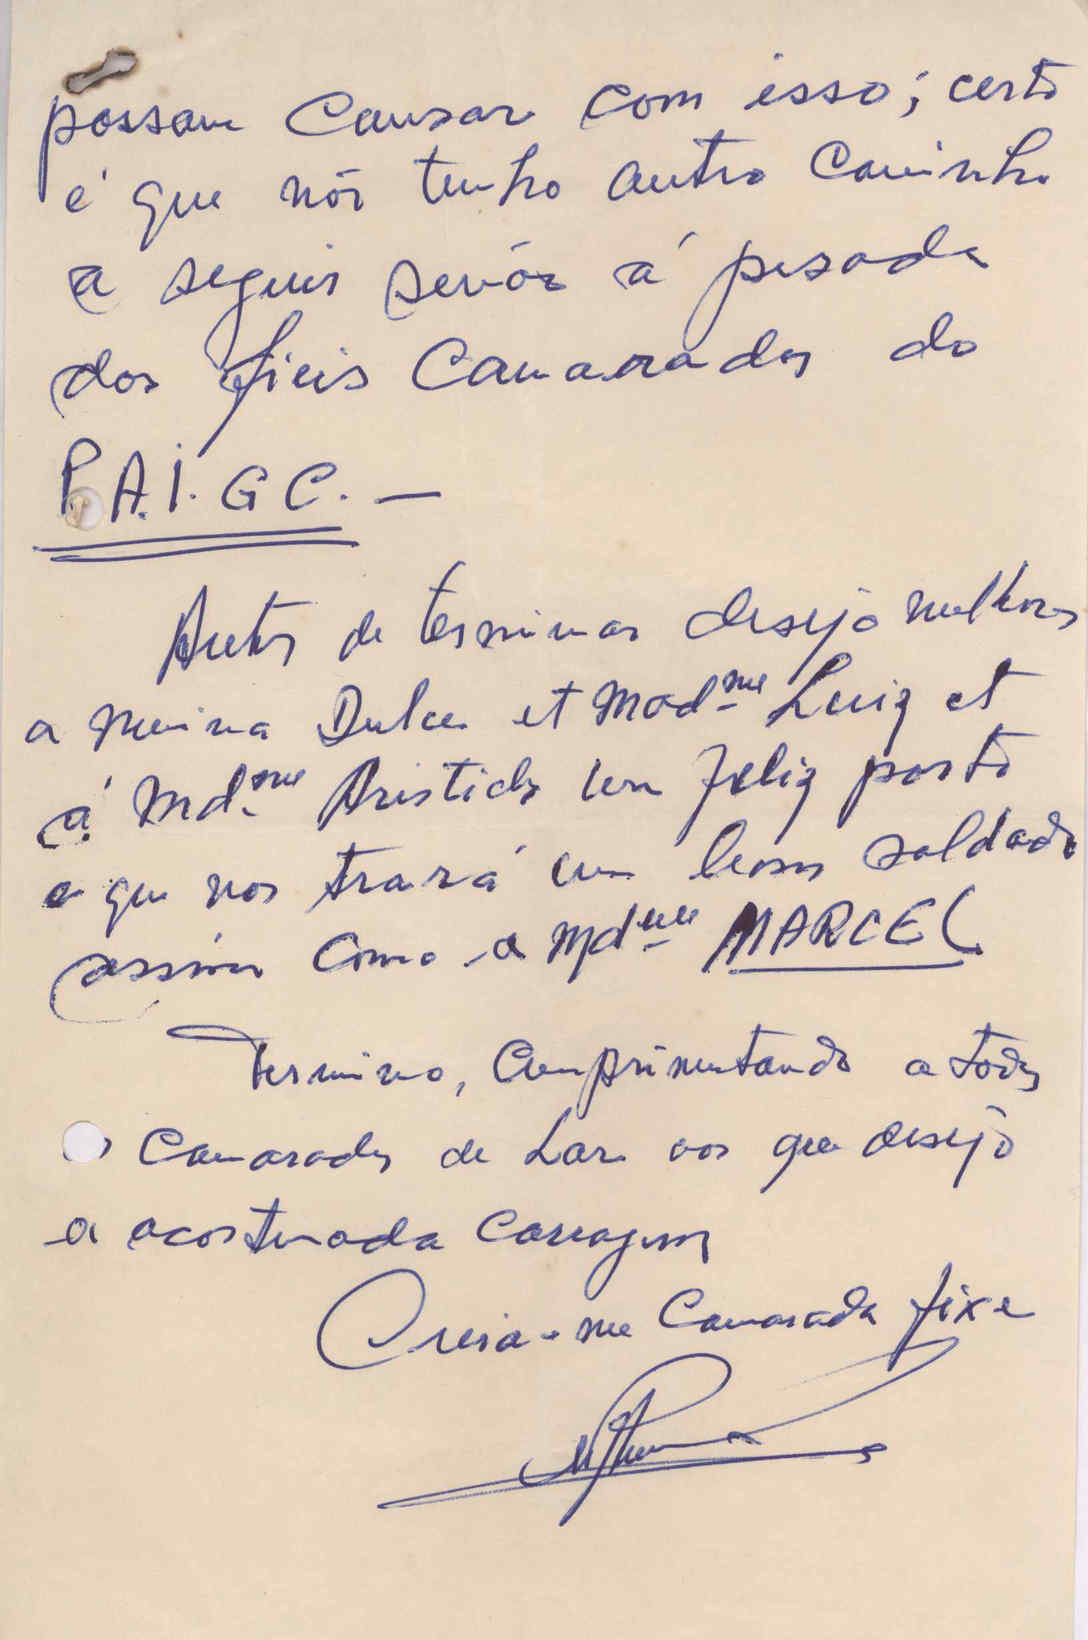 possam causar com isso; certo
é que nós tenho outro caminho
a seguir senão a pesada
dos fieis Camaradas do
P.A.I.GC. —
Antes de terminar desejo melhoras
a menina Dulce et Mad.me Luiz et
á Md.me Aristides um feliz parto
e que nos trará um bom soldado
assim como a Md.me MARCEL
Termino, Comprimentando a todos
os Camaradas de Lar aos que desejo
a acostumada Coragem
Creia-me Camarada fixe